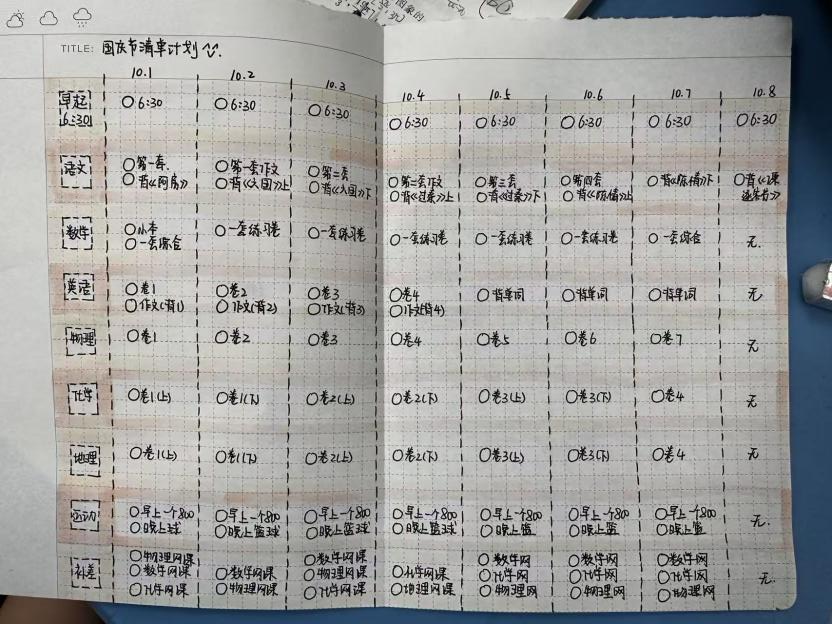 图象的
TITLE: 国庆节清单计划
10.1 10.2 10.3 10.4 10.5 10.6 10.7 10.8
早起 6:30 ○6:30 ○6:30 ○6:30 ○6:30 ○6:30 ○6:30 ○6:30 ○6:30
语文 ○第一套 ○第一套作文 ○第二套 ○第二套作文 ○第三套 ○第四套 ○背《陈情》下 ○背《1课
○背《阿房》 ○背《六国》上 ○背《六国》下 ○背《过秦》上 ○背《过秦》下 ○背《陈情》上
数学 ○小本 ○一套练习卷 ○一套练习卷 ○一套练习卷 ○一套练习卷 ○一套练习卷 ○一套综合 无.
○一套综合
英语 ○卷1 ○卷2 ○卷3 ○卷4 ○背单词 ○背单词 ○背单词 无
○作文(背1) ○作文(背2) ○作文(背3) ○作文(背4)
物理 ○卷1 ○卷2 ○卷3 ○卷4 ○卷5 ○卷6 ○卷7 无
化学 ○卷1(上) ○卷1(下) ○卷2(上) ○卷2(下) ○卷3(上) ○卷3(下) ○卷4 无
地理 ○卷1(上) ○卷1(下) ○卷2(上) ○卷2(下) ○卷3(上) ○卷3(下) ○卷4 无
运动 ○早上一个800 ○早上一个800 ○早上一个800 ○早上一个800 ○早上一个800 ○早上一个800 ○早上一个800 无.
○晚上球 ○晚上篮球 ○晚上篮球 ○晚上篮球 ○晚上篮 ○晚上篮 ○晚上篮
补差 ○物理网课 ○数学网课 ○数学网课 ○化学网课 ○数学网 ○数学网 ○数学网 无.
○数学网课 ○物理网课 ○物理网课 ○地理网课 ○化学网 ○化学网 ○化学网
○化学网课 ○化学网课 ○物理网 ○物理网 ○物理网